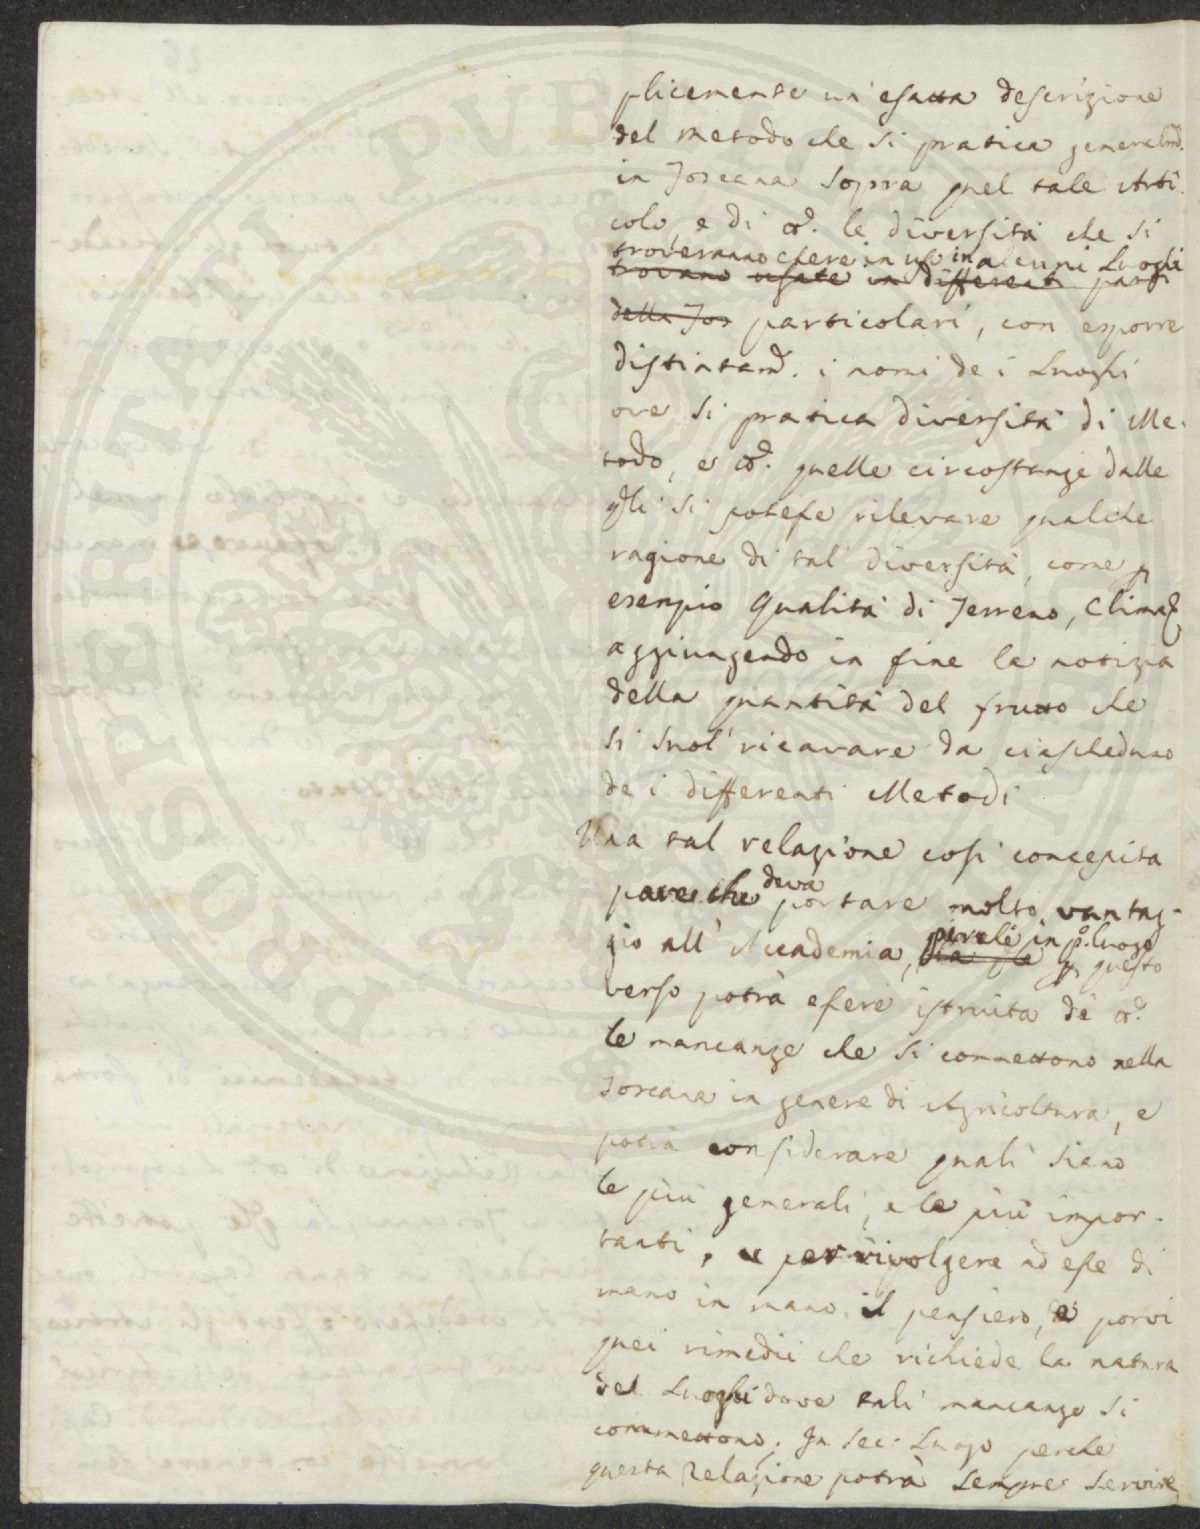 plicemente un' esatta descrizione
del metodo che si pratica generalmᵉ.
in Toscana sopra quel tale Arti-
colo, e di tᵉ. le diversità che si
troveranno essere in uso in alcuni Luoghi
trovano usate in differenti parti
della Tos particolari, con esporre
distintamᵉ. i nomi de i Luoghi
ove si pratica diversità di Me-
todo, e tᵉ. quelle circostanze dalle
qli si potesse rilevare qualche
ragione di tal diversità, come p
esempio Qualità di Terreno, Clima &
aggiungendo in fine la notizia
della quantità del frutto che
si suol ricavare da ciascheduno
de i differenti Metodi
Una tal relazione così concepita
pare che deva portare molto vantag-
gio all' Accademia, perche in pº. luogo
p questo
verso potrà essere istruita di tᵉ.
le mancanze che si commettono nella
Toscana in genere di Agricoltura, e
potrà considerare quali siano
le più generali, e le più impor-
tanti, e per rivolgere ad esse di
mano in mano il pensiero, e porvi
quei rimedii che richiede la natura
del Luoghi dove tali mancanze si
commettono. In sec. Luogo perche
questa Relazione potrà sempre servire
PROSPERITATI PVBLICAE